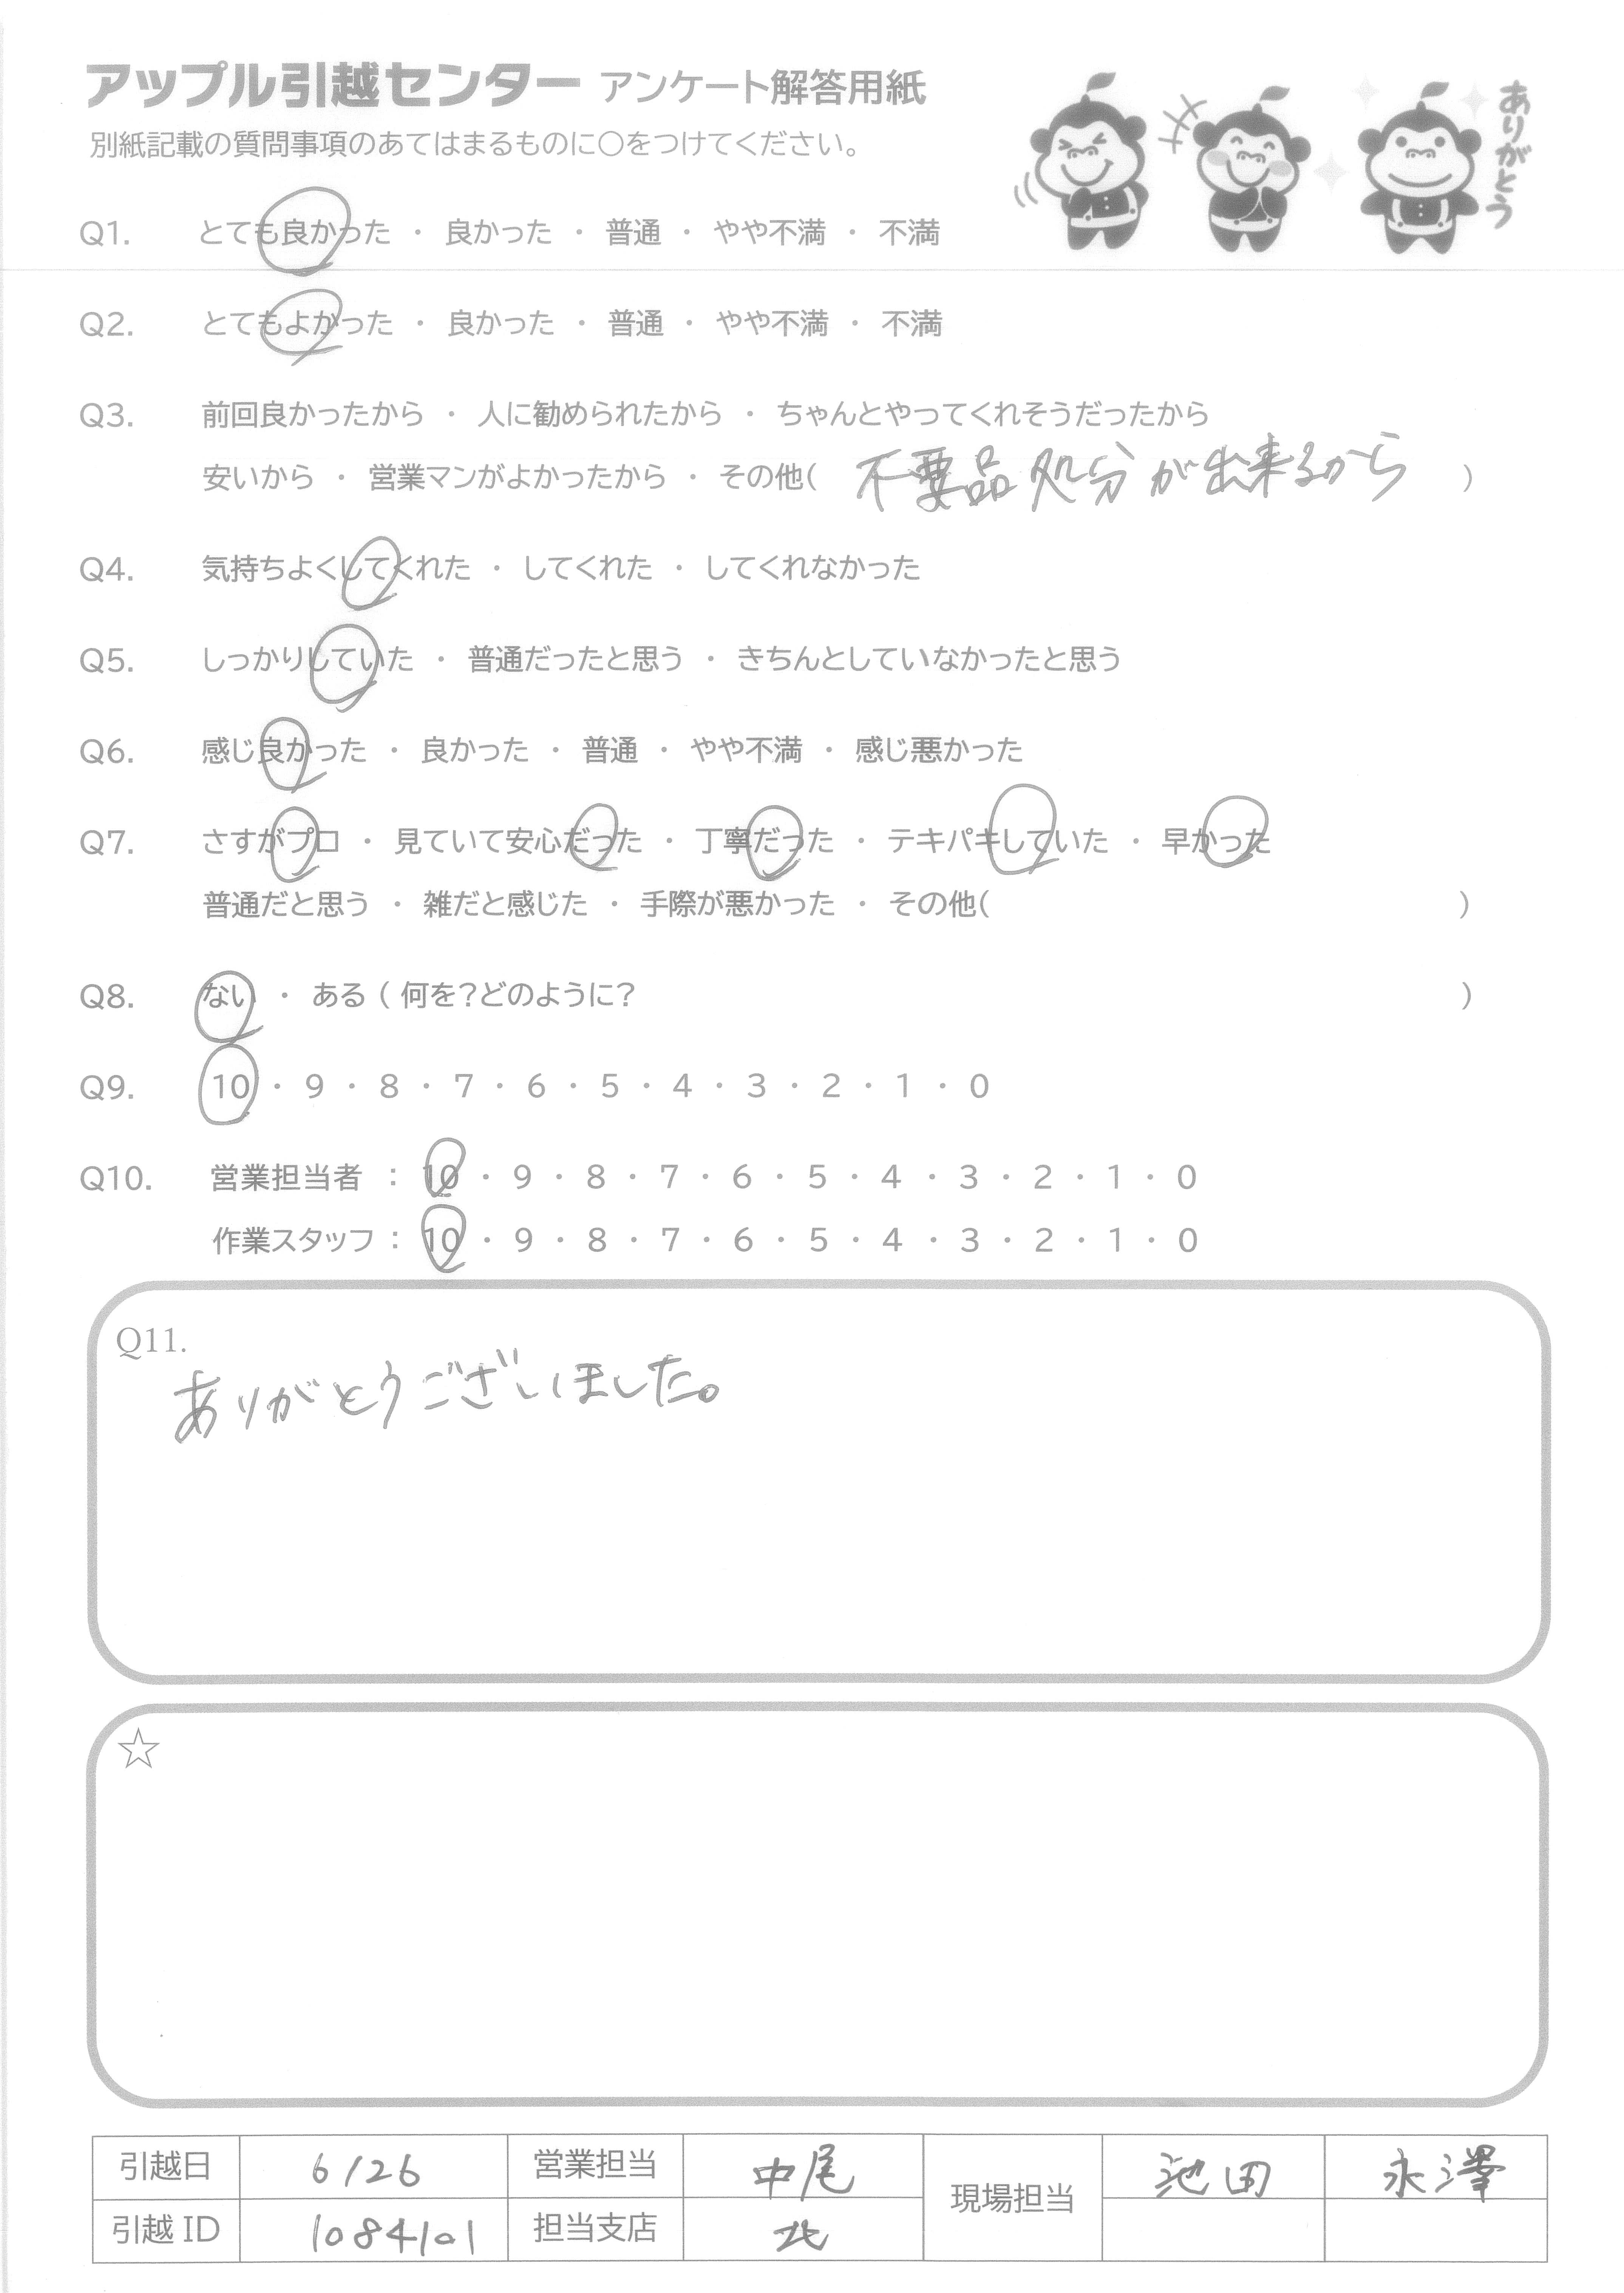 アップル引越センター アンケート解答用紙
ありがとう
別紙記載の質問事項のあてはまるものに〇をつけてください。
Q1. とても良かった ・ 良かった ・ 普通 ・ やや不満 ・ 不満
Q2. とてもよかった ・ 良かった ・ 普通 ・ やや不満 ・ 不満
Q3. 前回良かったから ・ 人に勧められたから ・ ちゃんとやってくれそうだったから
安いから ・ 営業マンがよかったから ・ その他( 不要品処分が出来るから )
Q4. 気持ちよくしてくれた ・ してくれた ・ してくれなかった
Q5. しっかりしていた ・ 普通だったと思う ・ きちんとしていなかったと思う
Q6. 感じ良かった ・ 良かった ・ 普通 ・ やや不満 ・ 感じ悪かった
Q7. さすがプロ ・ 見ていて安心だった ・ 丁寧だった ・ テキパキしていた ・ 早かった
普通だと思う ・ 雑だと感じた ・ 手際が悪かった ・ その他( )
Q8. ない ・ ある ( 何を?どのように? )
Q9. 10 ・ 9 ・ 8 ・ 7 ・ 6 ・ 5 ・ 4 ・ 3 ・ 2 ・ 1 ・ 0
Q10. 営業担当者 : 10 ・ 9 ・ 8 ・ 7 ・ 6 ・ 5 ・ 4 ・ 3 ・ 2 ・ 1 ・ 0
作業スタッフ : 10 ・ 9 ・ 8 ・ 7 ・ 6 ・ 5 ・ 4 ・ 3 ・ 2 ・ 1 ・ 0
Q11.
ありがとうございました。
☆
引越日 6/26 営業担当 中尾 現場担当 池田 永澤
引越 ID 1084101 担当支店 北